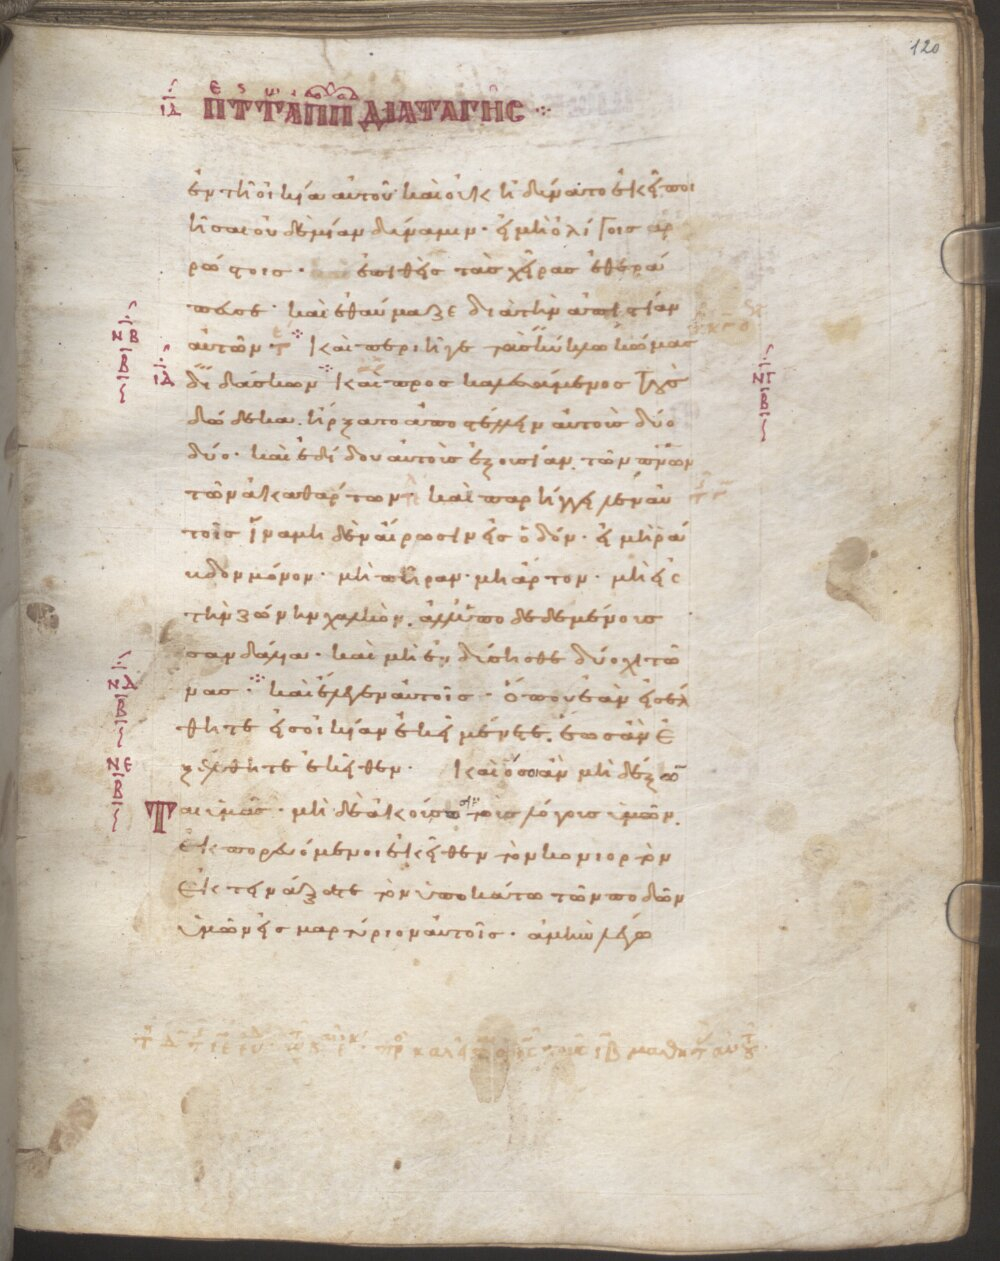 120
ΙΔ ΠΕΡΙ ΤΗΣ ΤΩΝ ΑΠΟΣΤΟΛΩΝ ΔΙΑΤΑΓΗΣ
ἐν τῆ οἰκία αὐτοῦ· καὶ οὐκ ἠδύνατο ἐκεῖ ποι
ῆσαι οὐδεμίαν δύναμιν· εἰ μὴ ὀλίγοις ἀρ
ρώστοις· ἐπιθεὶς τὰς χεῖρας ἐθερά
πευσε· καὶ ἐθαύμαζε διὰ τὴν ἀπιστίαν
ΝΒ Β
αὐτῶν· Καὶ περιῆγε τὰς κύκλω κώμας
ΙΔ
διδάσκων· Καὶ προσκαλεσάμενος τοὺς
ΝΓ Β
δώδεκα. ἤρξατο ἀποστέλλειν αὐτοὺς δύο
δύο· καὶ ἐδίδου αὐτοῖς ἐξουσίαν τῶν πνῶν
τῶν ἀκαθάρτων· καὶ παρήγγειλεν αὐ
τοῖς ἵνα μηδὲν αἴρωσιν εἰς ὁδόν· εἰ μὴ ρά
βδον μόνον· μὴ πήραν· μὴ ἄρτον· μὴ εἰς
τὴν ζώνην χαλκὸν. ἀλλ' ὑποδεδεμένους
σανδάλια· καὶ μὴ ἐνδύσησθε δύο χιτῶ
ΝΔ Β
νας· καὶ ἔλεγεν αὐτοῖς· ὅπου ἐὰν εἰσέλ
θητε εἰς οἰκίαν ἐκεῖ μένετε. ἕως ἂν ἐ
ΝΕ Β
ξέλθητε ἐκεῖθεν· Καὶ ὅσοι ἂν μὴ δέξων
ται ὑμᾶς· μὴ δὲ ἀκούσωσιν τοῖς λόγοις ὑμῶν.
ἐκπορευόμενοι ἐκεῖθεν τὸν κονιορτὸν
ἐκτινάξατε τὸν ὑποκάτω τῶν ποδῶν
ὑμῶν εἰς μαρτύριον αὐτοῖς· ἀμὴν λέγω